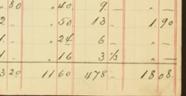 .80 .40 9 –
. .50 13 1.90
. .24 6 – . –
. .16 3½ . –
3 20 11 60 478 – 18 08